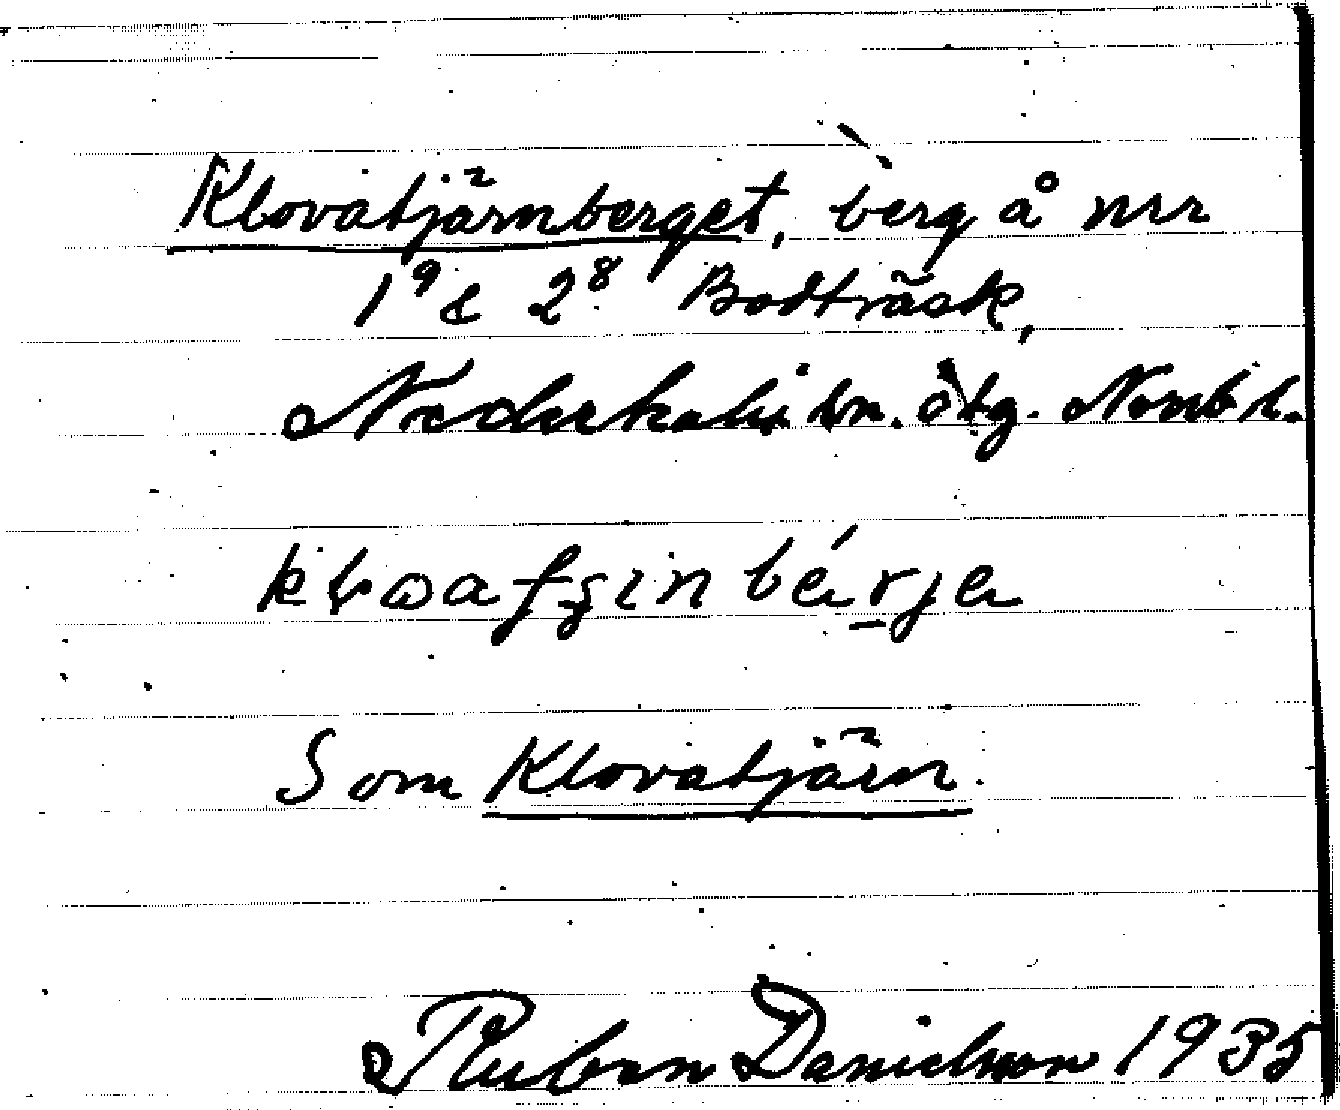 Klovatjärnberget, berg å nrr
1⁹ & 2⁸ Bodträsk,
Nederkalix sn. ö. tg. Nonb l.
Som Klovatjärn.
Ruben Danielsson 1935